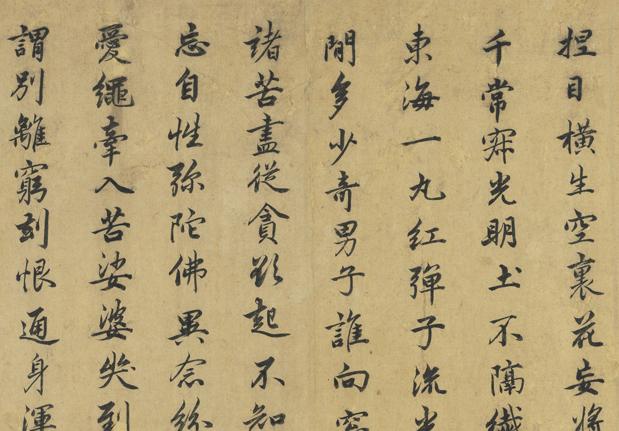 捏目橫生空裏花妄將
千常寂光明土不隔纖
東海一丸紅彈子流光
閒多少奇男子誰向空
諸苦盡從貪欲起不知
忘自性彌陀佛異念紛
愛繩牽入苦娑婆哭到
謂別離窮刻恨通身渾